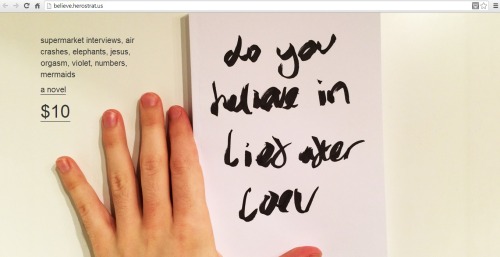 believe.herostrat.us
supermarket interviews, air
crashes, elephants, jesus,
orgasm, violet, numbers,
mermaids
a novel
$10
do you
believe in
lief after
loev